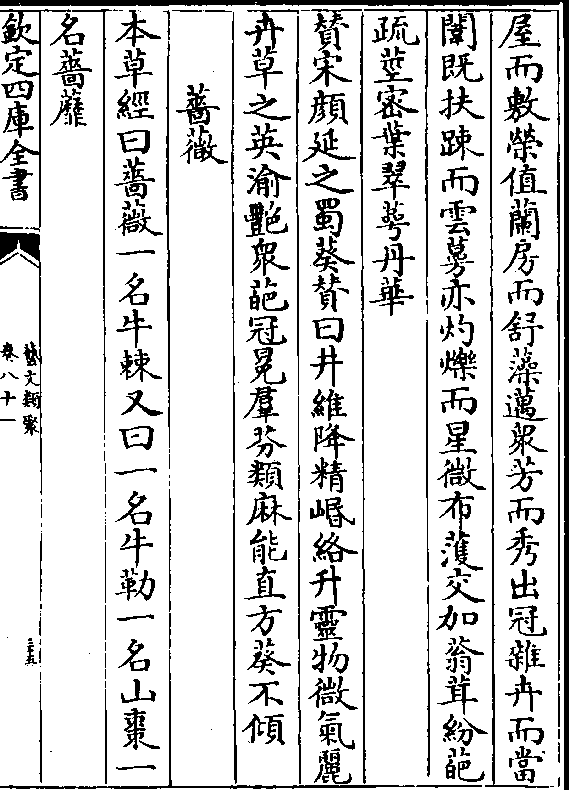 屋而敷榮值蘭房而舒藻邁衆芳而秀出冠雜卉而當
闈既扶踈而雲蔓亦灼爍而星微布濩交加蓊茸紛葩
疏莖密葉翠萼丹華
賛宋顔延之蜀葵賛曰井維降精岷絡升靈物微氣麗
卉草之英渝艷衆葩冠冕羣芬類麻能直方葵不傾
薔薇
本草經曰薔薇一名牛棘又曰一名牛勒一名山棗一
名薔蘼
欽定四庫全書
藝文類聚
卷八十一
三五